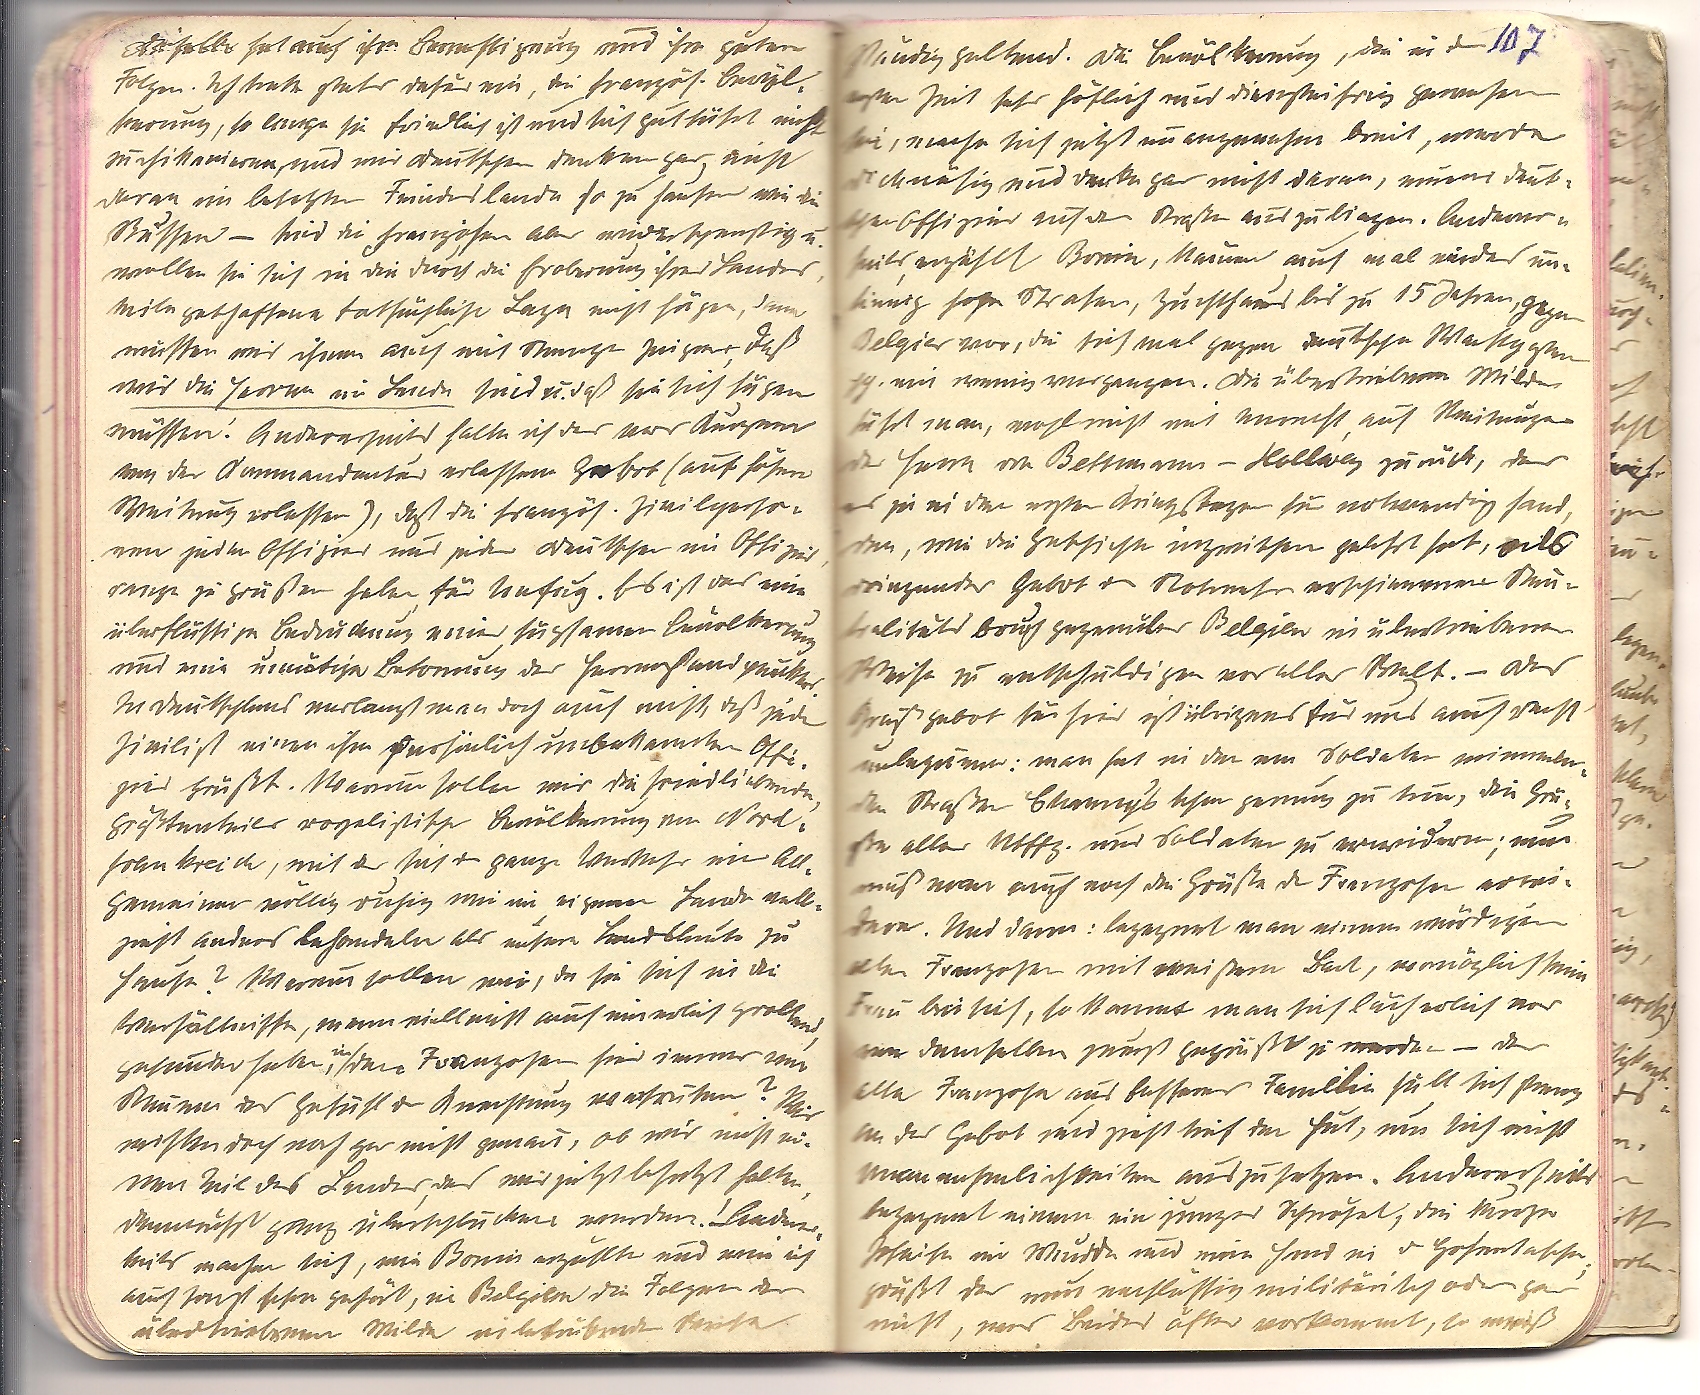 Dieselbe hat auch ihre Berechtigung und ihre guten
Folgen. Ich trete stets dafür ein, die französ. Bevöl-
kerung, so lange sie friedlich ist und sich gut führt nicht
zu schikanieren, und wir Deutschen denken gar nicht
daran im besetzten Feindeslande so zu hausen wie die
Russen – sind die Franzosen aber widerspenstig u.
wollen sie sich in die durch die Eroberung ihres Landes-
teils geschaffene tatsächliche Lage nicht fügen, dann
müssen wir ihnen auch mit Strenge zeigen, daß
wir die Herren im Lande sind u. daß sie sich fügen
müssen! Andererseits halte ich das vor Kurzem
von der Kommandantur erlassene Gebot (auf höhere
Weisung erlassen), daß die französ. Zivilperso-
nen jeden Offizier und jeden Deutschen im Offiziers-
range zu grüßen haben, für Unfug. Es ist das eine
überflüssige Bedrückung einer fügsamen Bevölkerung
und eine unnötige Betonung des Herrenstandpunktes.
In Deutschland verlangt man doch auch nicht, daß jeder
Zivilist einen ihm persönlich unbekannten Offi-
zier grüßt. Warum sollen wir die friedliebende,
größtenteils royalistische Bevölkerung von Nord-
frankreich, mit der sich der ganze Verkehr im All-
gemeinen völlig ruhig wie im eigenen Lande voll-
zieht anders behandeln als unsere Landsleute zu
Hause? Warum sollen wir, da sie sich in die
Verhältnisse, wenn vielleicht auch innerlich grollend,
gefunden haben, in den Franzosen hier immer von
Neuem das Gefühl der Knechtung wachrufen? Wir
wissen doch noch gar nicht genau, ob wir nicht ei-
nen Teil des Landes, das wir jetzt besetzt halten,
demnächst ganz überschlucken werden! Anderer-
teils machen sich, wie Bonin erzählte und wie ich
auch sonst schon gehört, in Belgien die Folgen der
übertriebenen Milde
ständig geltend. Die Bevölkerung, die in der 107
ersten Zeit sehr höflich und diensteifrig gewesen
sei, mache sich jetzt unangenehm breit, werde
dicknäsig und denke gar nicht daran, einem deut-
schen Offizier auf der Straße auszubiegen. Anderer-
teils, erzählt Bonin, kämen auch mal wieder un-
sinnig hohe Strafen, Zuchthaus bis zu 15 Jahren, gegen
Belgier vor, die sich mal gegen deutsche Wachtposten
pp. ein wenig vergangen. Die übertriebene Milde
führt man, wohl nicht mit Unrecht, auf Weisungen
des Herrn von Bethmann-Hollweg zurück, der
es ja in den ersten Kriegstagen für notwendig fand,
den, wie die Geschichte inzwischen gelehrt hat, als
dringendes Gebot der Notwehr erschienenen Neu-
tralitätsbruch gegenüber Belgien in übertriebener
Weise zu entschuldigen vor aller Welt. – Das
Grußgebot hier ist übrigens für uns auch recht
unbequem: man hat in den von Soldaten wimmeln-
den Straßen Chaunys schon genug zu tun, die Grü-
ße aller Uffz. und Soldaten zu erwidern; nun
muß man auch noch die Grüße der Franzosen erwi-
dern. Und dann: begegnet man einem würdigen
alten Franzosen mit weißem Bart, womöglich seine
Frau bei sich, so kommt man sich lächerlich vor
von demselben zuerst gegrüßt zu werden – der
alte Franzose aus besserer Familie hält sich streng
an das Gebot und zieht tief den Hut, um sich nicht
Unannehmlichkeiten auszusetzen. Andererseits
begegnet einem ein junger Schnösel, die kurze
Pfeife im Munde und eine Hand in d. Hosentasche,
grüßt der nun nachlässig militärisch oder gar
nicht, was Beides öfter vorkommt, so muß